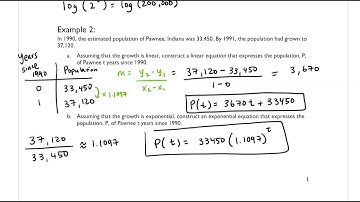 log (2^x) = log (200,000)
Example 2:
In 1990, the estimated population of Pawnee, Indiana was 33,450. By 1991, the population had grown to
37,120.
a. Assuming that the growth is linear, construct a linear equation that expresses the population, P,
of Pawnee t years since 1990.
years since 1990
Population
0 33,450
1 37,120
× 1.1097
m = y₂ - y₁ / x₂ - x₁ = 37,120 - 33,450 / 1 - 0 = 3,670
P(t) = 3670 t + 33450
b. Assuming that the growth is exponential, construct an exponential equation that expresses the
population, P, of Pawnee t years since 1990.
37,120 / 33,450 ≈ 1.1097
P(t) = 33450 (1.1097)^t
1